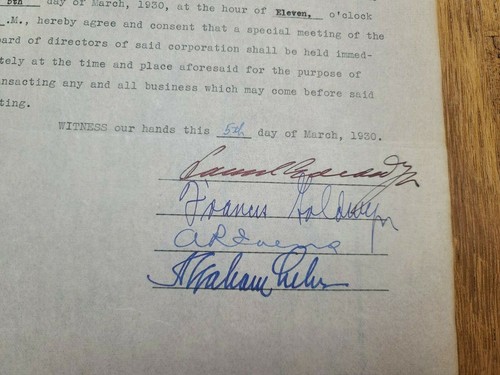 5th day of March, 1930, at the hour of Eleven, o'clock
.M., hereby agree and consent that a special meeting of the
ard of directors of said corporation shall be held immed-
tely at the time and place aforesaid for the purpose of
ansacting any and all business which may come before said
ting.
WITNESS our hands this 5th day of March, 1930.
Samuel Goldwyn
Francis Goldwyn
Abraham Lehr